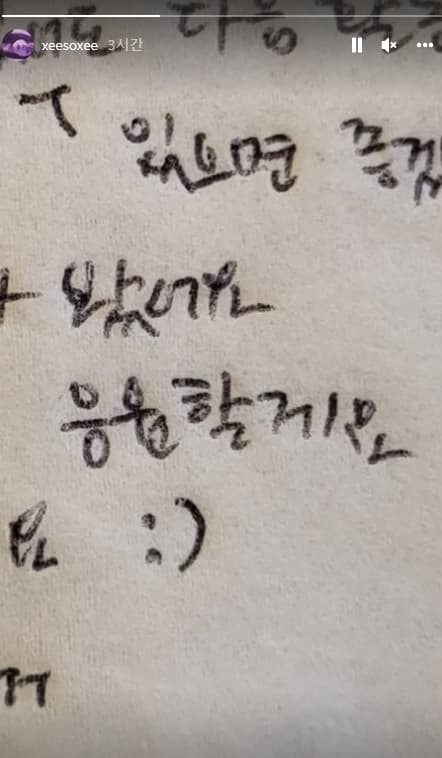 xeesoxee 3시간
도 다음
있으면 좋겠
봤어요
응원할게요
요 :)